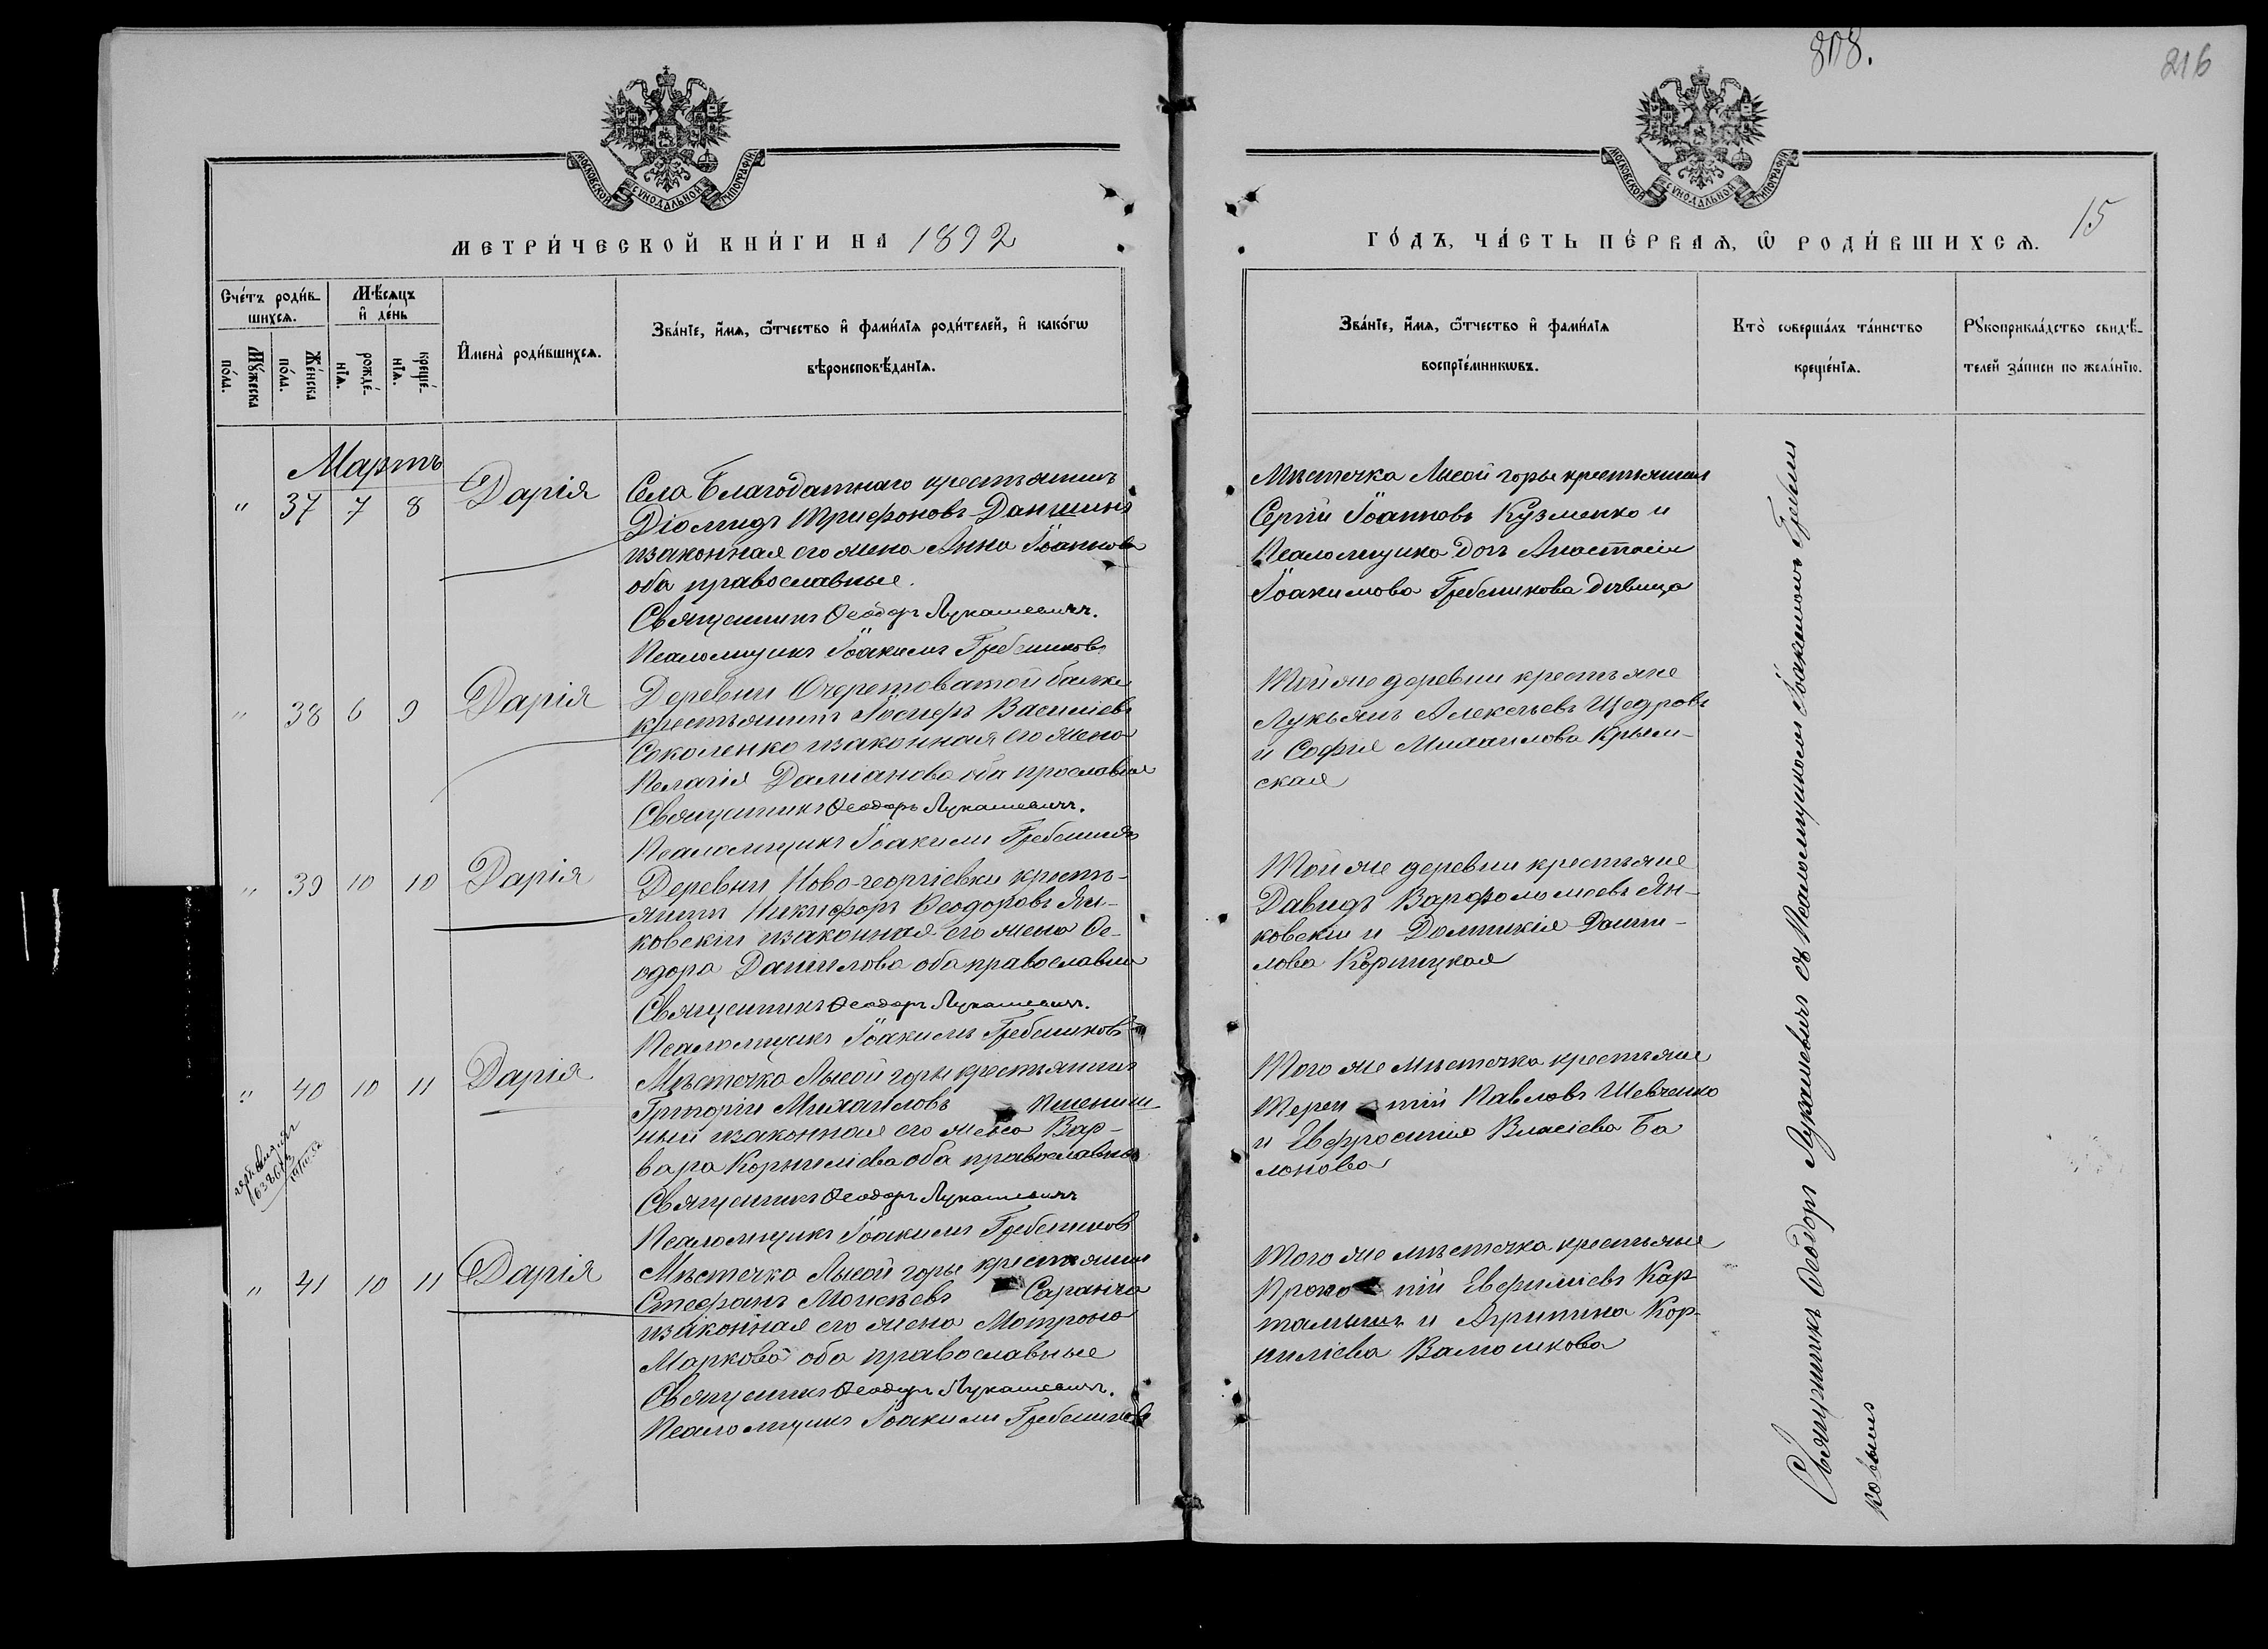 808.
216
15
МОСКОВСКОЙ СУНОДАЛЬНОЙ ТИПОГРАФІИ
МОСКОВСКОЙ СУНОДАЛЬНОЙ ТИПОГРАФІИ
МЕТРИ́ЧЕСКОЙ КНИ́ГИ НА 1892
ГО́ДЪ, ЧА́СТЬ ПЕ́РВАѦ, Ѿ РОДИ́ВШИХСѦ.
Сче́тъ роди́вшихсѧ.
Мꙋ́жеска по́ла.
Же́нска по́ла.
Мѣ́сѧцъ и҆ де́нь
рожде́нїѧ.
креще́нїѧ.
И҆мена̀ роди́вшихсѧ.
Зва́нїе, и҆́мѧ, ѻ҆́тчество и҆ фами́лїѧ роди́телей, и҆ како́гѡ
вѣроисповѣ́данїѧ.
Зва́нїе, и҆́мѧ, ѻ҆́тчество и҆ фами́лїѧ
воспрїе́мникѡвъ.
Кто̀ соверша́лъ та́инство
креще́нїѧ.
Рꙋкоприкла́дство свидѣ́-
телей за́писи по жела́нїю.
Мартъ
" 37 7 8 Дарія
Села Благодатнаго крестьянинъ
Діомидъ Трифоновъ Даншинъ
и законная его жена Анна Іоаннова
оба православные.
Священникъ Ѳеодоръ Лукашевичъ.
Псаломщикъ Іоакимъ Гребенниковъ
Мѣстечка Лысой горы крестьянинъ
Сергій Іоанновъ Кузменко и
Псаломщика дочь Анастасія
Іоакимова Гребенникова дѣвица
" 38 6 9 Дарія
Деревни Очеретоватой балки
крестьянинъ Іосифъ Василіевъ
Соколенко и законная его жена
Пелагія Даміанова оба
Священникъ Ѳеодоръ Лукашевичъ.
Псаломщикъ Іоакимъ Гребенниковъ
Той же деревни крестьяне
Лукьянъ Алексѣевъ Щедровъ
и Софія Михаилова Крым-
ская
" 39 10 10 Дарія
Деревни Ново-георгіевки кресть-
янинъ Никифоръ Ѳеодоровъ Ян-
ковскій и законная его жена Ѳе-
одора Даніилова оба православны
Священникъ Ѳеодоръ Лукашевичъ.
Псаломщикъ Іоакимъ Гребенниковъ
Той же деревни крестьяне
Давидъ Варфоломеевъ Ян-
ковскій и Домникія Даніи-
лова
" 40 10 11 Дарія
Мѣстечка Лысой горы крестьянинъ
Григорій Михаиловъ Пшенич-
ный и законная его жена Вар-
вара Корниліева оба православны
Священникъ Ѳеодоръ Лукашевичъ
Псаломщикъ Іоакимъ Гребенниковъ
Того же мѣстечка крестьяне
Терен тій Павловъ Шевченко
и Евфросинія Власіева Ба
лонова
" 41 10 11 Дарія
Мѣстечка Лысой горы крестьянинъ
Стефанъ Моисѣевъ Саранча
и законная его жена Матрона
Маркова оба православные
Священникъ Ѳеодоръ Лукашевичъ.
Псаломщикъ Іоакимъ Гребенниковъ
Того же мѣстечка крестьяне
Проко пій Евфиміевъ Кар-
и Агрипина Кор-
ниліева
Священникъ Ѳеодоръ Лукашевичъ съ Псаломщикомъ Іоакимомъ Гребенни
ковымъ